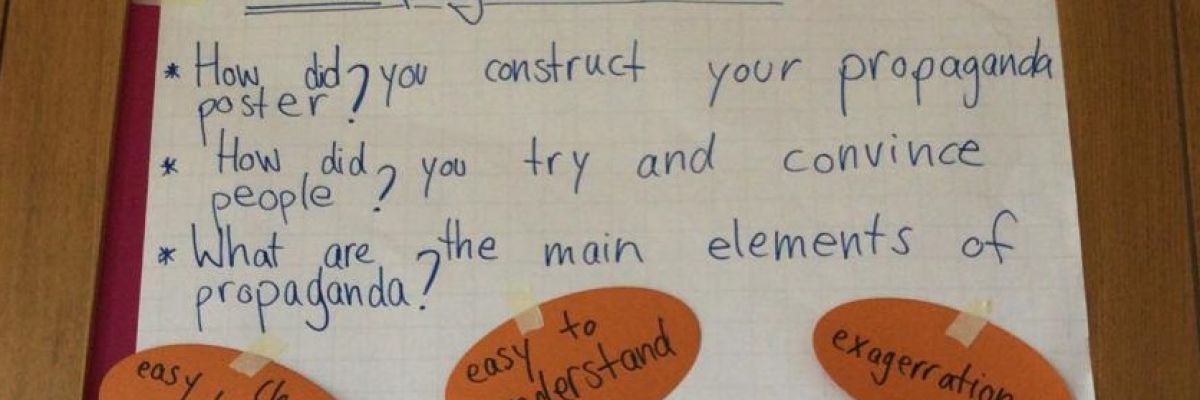 * How did you construct your propaganda
poster?
* How did you try and convince
people?
* What are the main elements of
propaganda?
easy
easy to
understand
exagerration